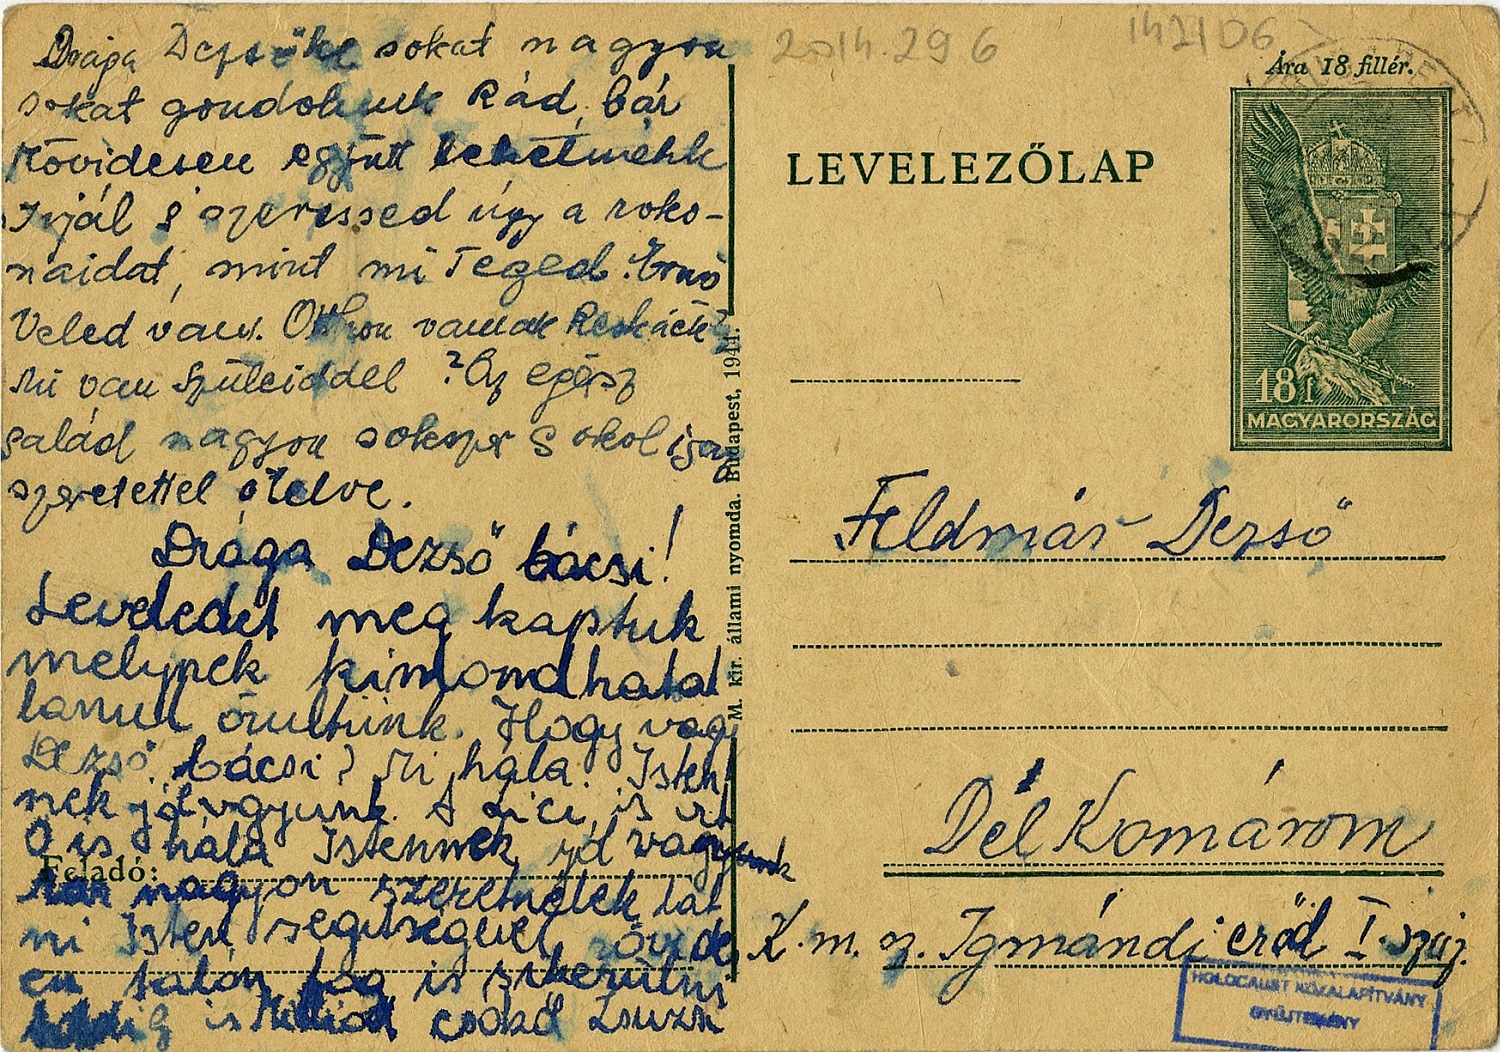 Drága Dezsőke sokat nagyon
sokat gondolunk Rád, bár
rövidesen együtt lehetnénk
Irjál s szeressed úgy a roko-
naidat, mint mi Téged. Ernő
Veled van. Otthon vannak
Mi van Szüleiddel? Az egész
család nagyon sokszor csókol igaz
szeretettel ölelve.
Drága Dezső bácsi!
Leveledet meg kaptuk
melynek kimondhatat
lanul örültünk. Hogy vagy
Dezső bácsi? Mi hála Isten
nek jól vagyunk. A Lici is irt
Ő is hála Istennek jól vagyunk
már nagyon szeretnélek lát
ni Isten segitségével, rövides
en talán fog is sikerülni
addig is Milliót csókol Zsuzsi
Feladó:
M. kir. állami nyomda. Budapest, 1941.
2014.29 6
142/06
Ára 18 fillér.
LEVELEZŐLAP
18 f
MAGYARORSZÁG
Feldmár Dezső
Dél Komárom
K. m. sz. Igmándi erőd I. szj.
HOLOCAUST KÖZALAPÍTVÁNY
GYŰJTEMÉNY